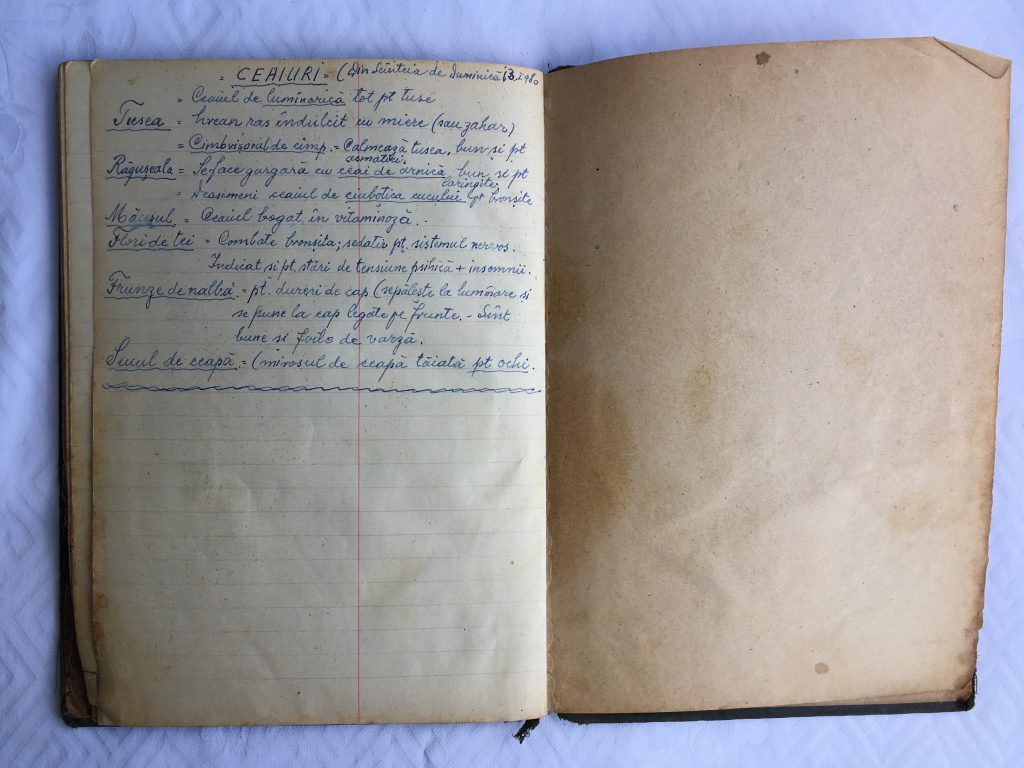 = CEAIURI = (din Scînteia de Duminică 13.I.980
= Ceaiul de luminarică tot pt tuse
Tusea = hrean ras îndulcit cu miere (sau zahar)
= Cimbrișorul de cîmp = Calmeaza tusea, bun și pt
asmatici.
Răgușeala = Se face gargară cu ceai de arnică, bun și pt
laringite
= Deasemeni ceaiul de ciuboțica cucului pt bronșite
Măcușul = Ceaiul bogat în vitaminoză.
Flori de tei = Combate bronsita; sedativ pt. sistemul nervos.
Indicat si pt. stări de tensiune psihică + insomnii.
Frunze de nalbă = pt. dureri de cap (sepălește la lumînare și
se pune la cap legate pe frunte. - Sînt
bune si foile de varză.
Sucul de ceapă = (mirosul de ceapă tăiată pt ochi.